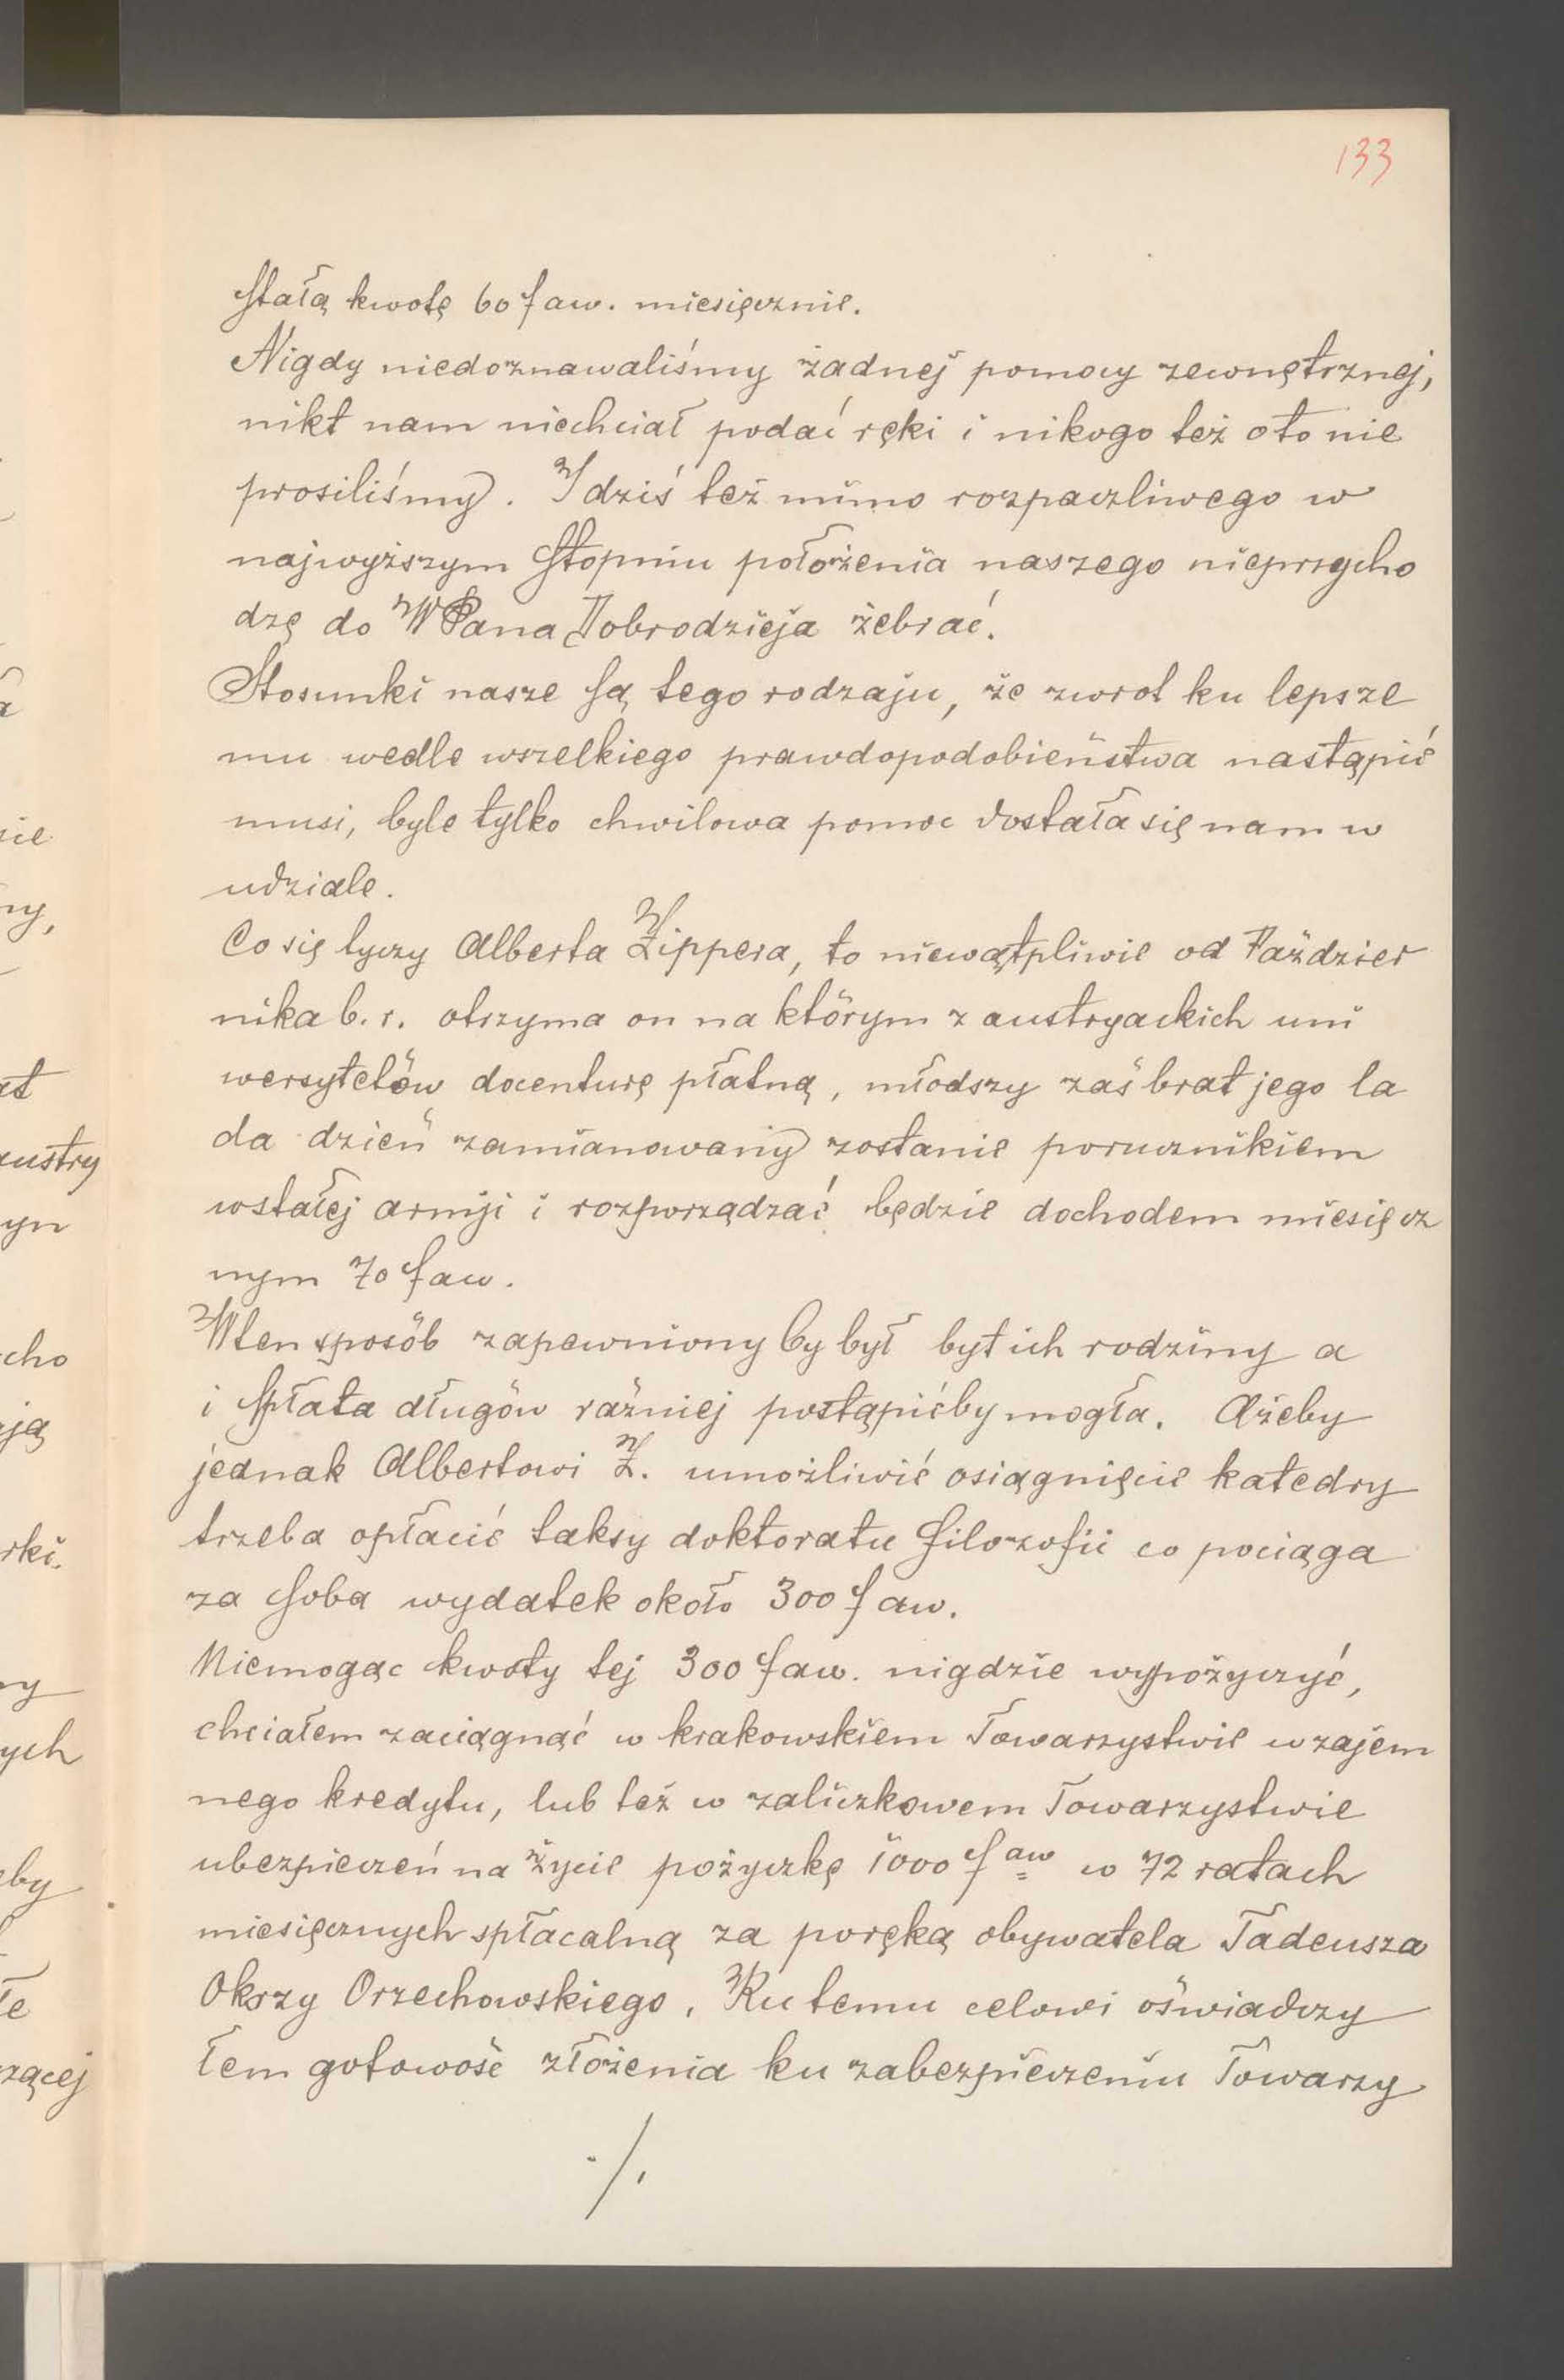 133
stałą kwotę 60 f aw. miesięcznie.
Nigdy niedoznawaliśmy żadnej pomocy zewnętrznej,
nikt nam niechciał podać ręki i nikogo też o to nie
prosiliśmy. I dziś też mimo rozpaczliwego w
najwyższym stopniu położenia naszego nieprzycho
dzę do WPana Dobrodzieja żebrać.
Stosunki nasze są tego rodzaju, że zwrot ku lepsze
mu wedle wszelkiego prawdopodobieństwa nastąpić
musi, byle tylko chwilowa pomoc dostała się nam w
udziale.
Co się tyczy Alberta Zippera, to niewątpliwie od Paździer
nika b. r. otrzyma on na którym z austryackich uni
wersytetów docenturę płatną, młodszy zaś brat jego la
da dzień zamianowany zostanie porucznikiem
wstałej armji i rozporządzać będzie dochodem miesięcz
nym 70 f aw.
Wten sposób zapewniony by był byt ich rodziny a
i spłata długów raźniej postąpićby mogła. Ażeby
jednak Albertowi Z. umożliwić osiągnięcie katedry
trzeba opłacić taksy doktoratu filozofii co pociąga
za soba wydatek około 300 f aw.
Niemogąc kwoty tej 300 f aw. nigdzie wypożyczyć,
chciałem zaciągnąć w krakowskiem Towarzystwie wzajem
nego kredytu, lub też w zaliczkowem Towarzystwie
ubezpieczeń na życie pożyczkę 1000 f aw w 72 ratach
miesięcznych spłacalną za poręką obywatela Tadeusza
Okszy Orzechowskiego. Ku temu celowi oświadczy
łem gotowość złożenia ku zabezpieczeniu Towarzy
./.